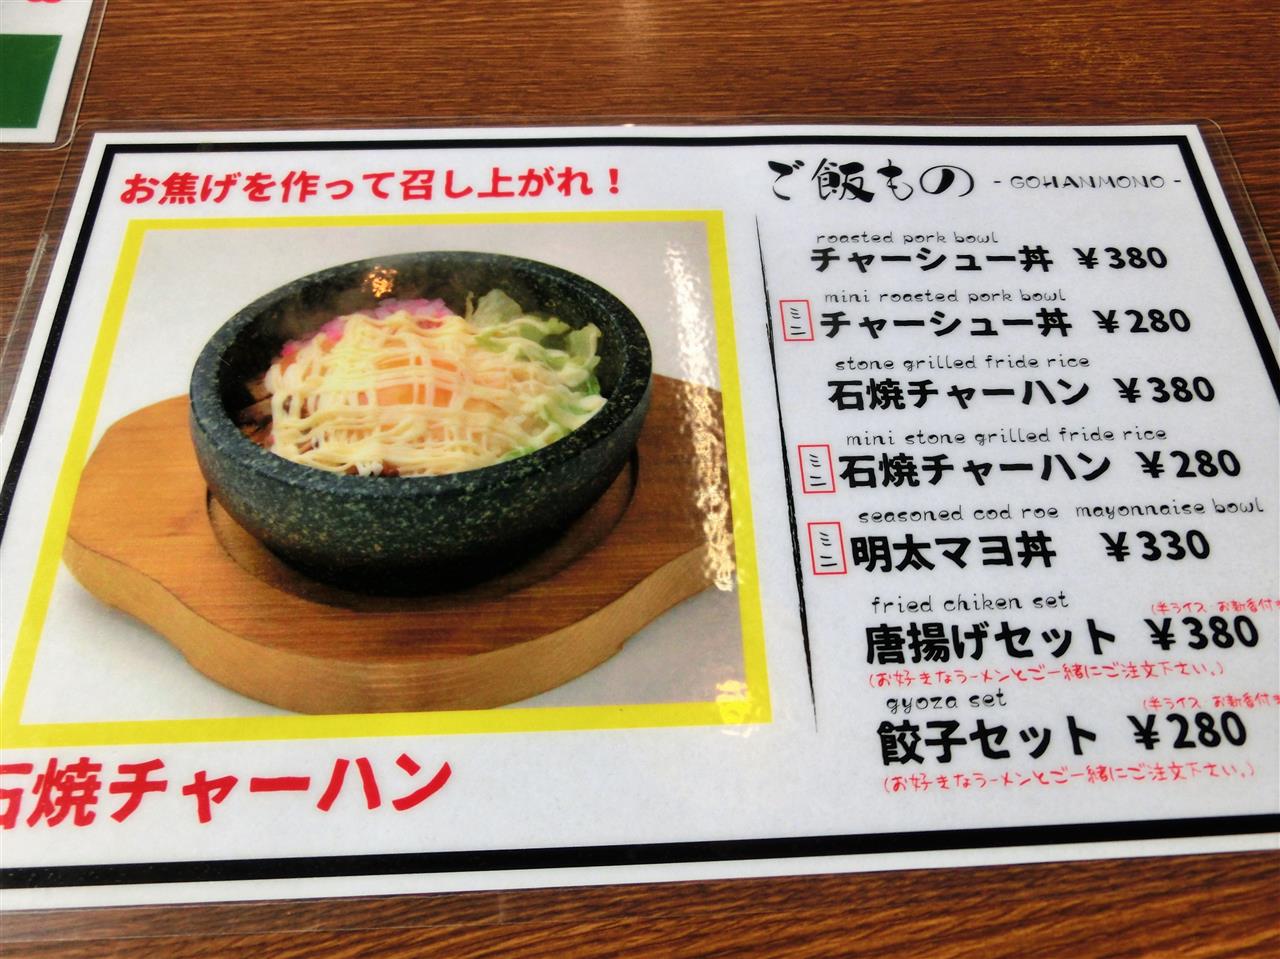 お焦げを作って召し上がれ！
石焼チャーハン
ご飯もの - GOHANMONO -
roasted pork bowl
チャーシュー丼 ￥380
mini roasted pork bowl
ミニ チャーシュー丼 ￥280
stone grilled fride rice
石焼チャーハン ￥380
mini stone grilled fride rice
ミニ 石焼チャーハン ￥280
seasoned cod roe mayonnaise bowl
ミニ 明太マヨ丼 ￥330
fried chiken set
(半ライス お新香付き
唐揚げセット ￥380
(お好きなラーメンとご一緒にご注文下さい。)
gyoza set
(半ライス お新香付き
餃子セット ￥280
(お好きなラーメンとご一緒にご注文下さい。)